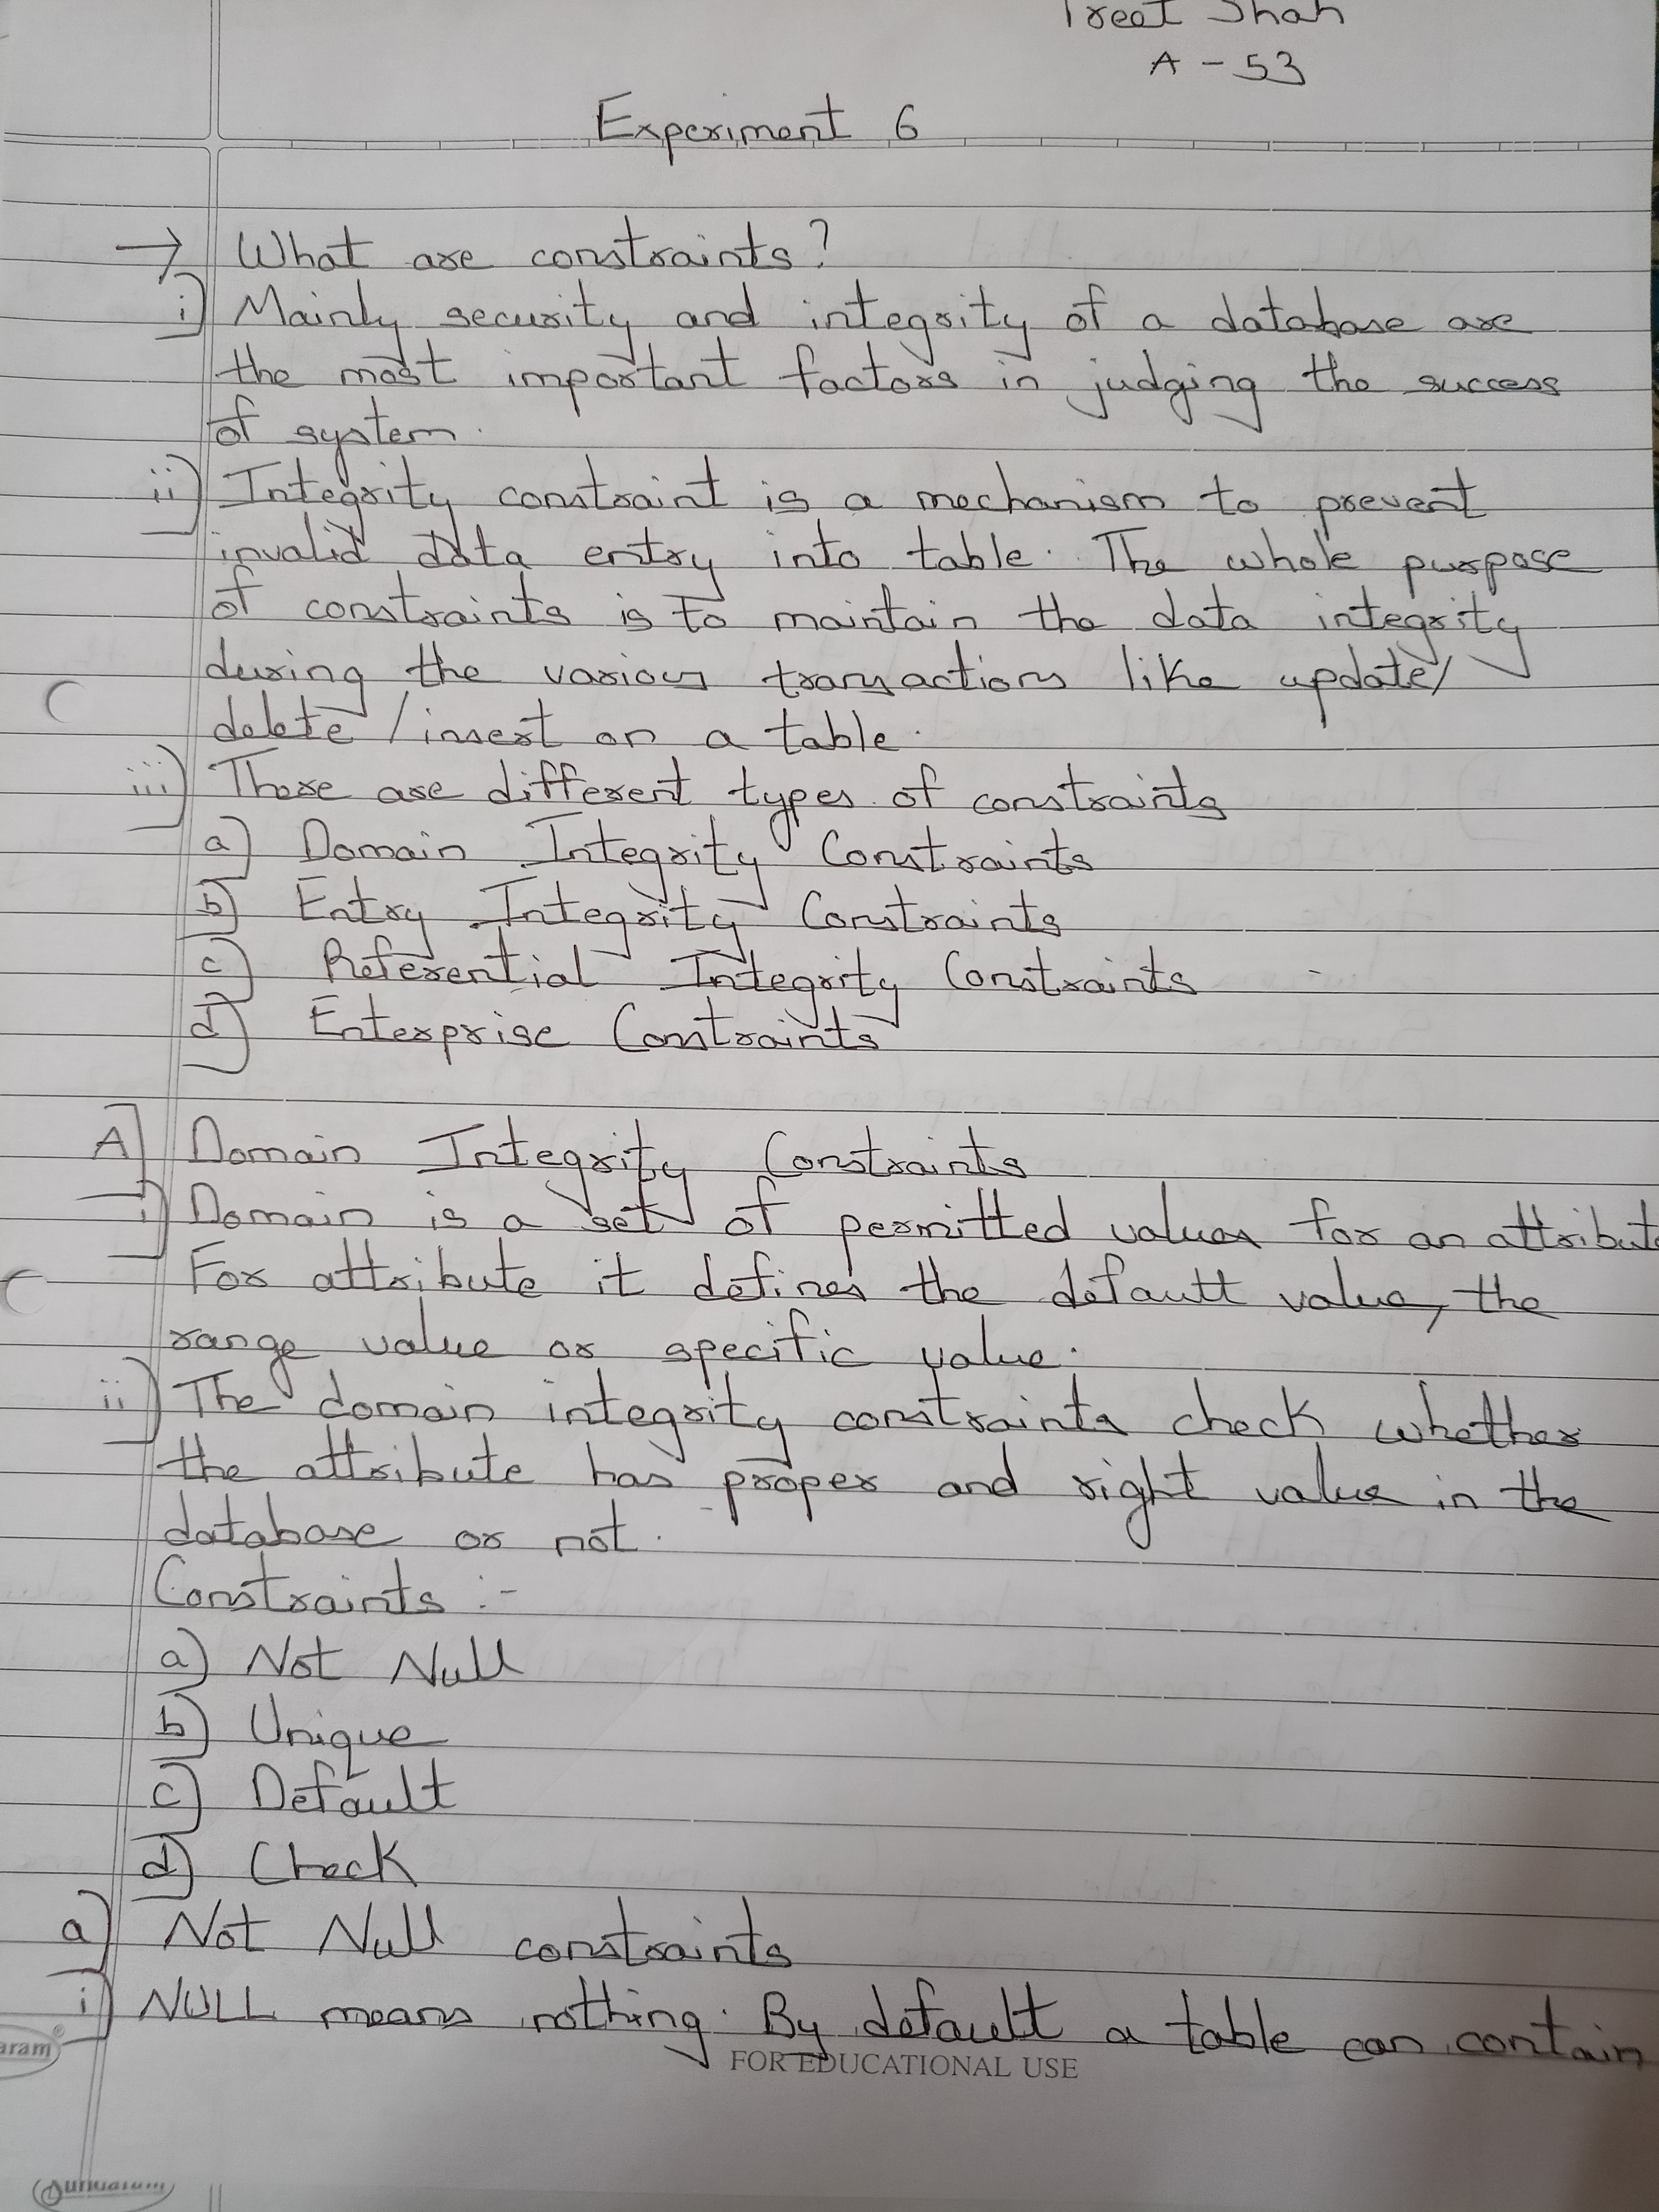 Preet Shah
A - 53
Experiment 6
→ What are constraints?
i) Mainly security and integrity of a database are
the most important factors in judging the success
of system.
ii) Integrity constraint is a mechanism to prevent
invalid data entry into table. The whole purpose
of constraints is to maintain the data integrity
during the various transactions like update/
delete / insert on a table.
iii) There are different types of constraints
a) Domain Integrity Constraints
b) Entry Integrity Constraints
c) Referential Integrity Constraints
d) Enterprise Constraints
A] Domain Integrity Constraints
i) Domain is a set of permitted values for an attribute
For attribute it defines the default value, the
range value or specific value.
ii) The domain integrity constraints check whether
the attribute has proper and right value in the
database or not.
Constraints :-
a) Not Null
b) Unique
c) Default
d) Check
a) Not Null constraints
i) NULL means nothing. By default a table can contain
aram
FOR EDUCATIONAL USE